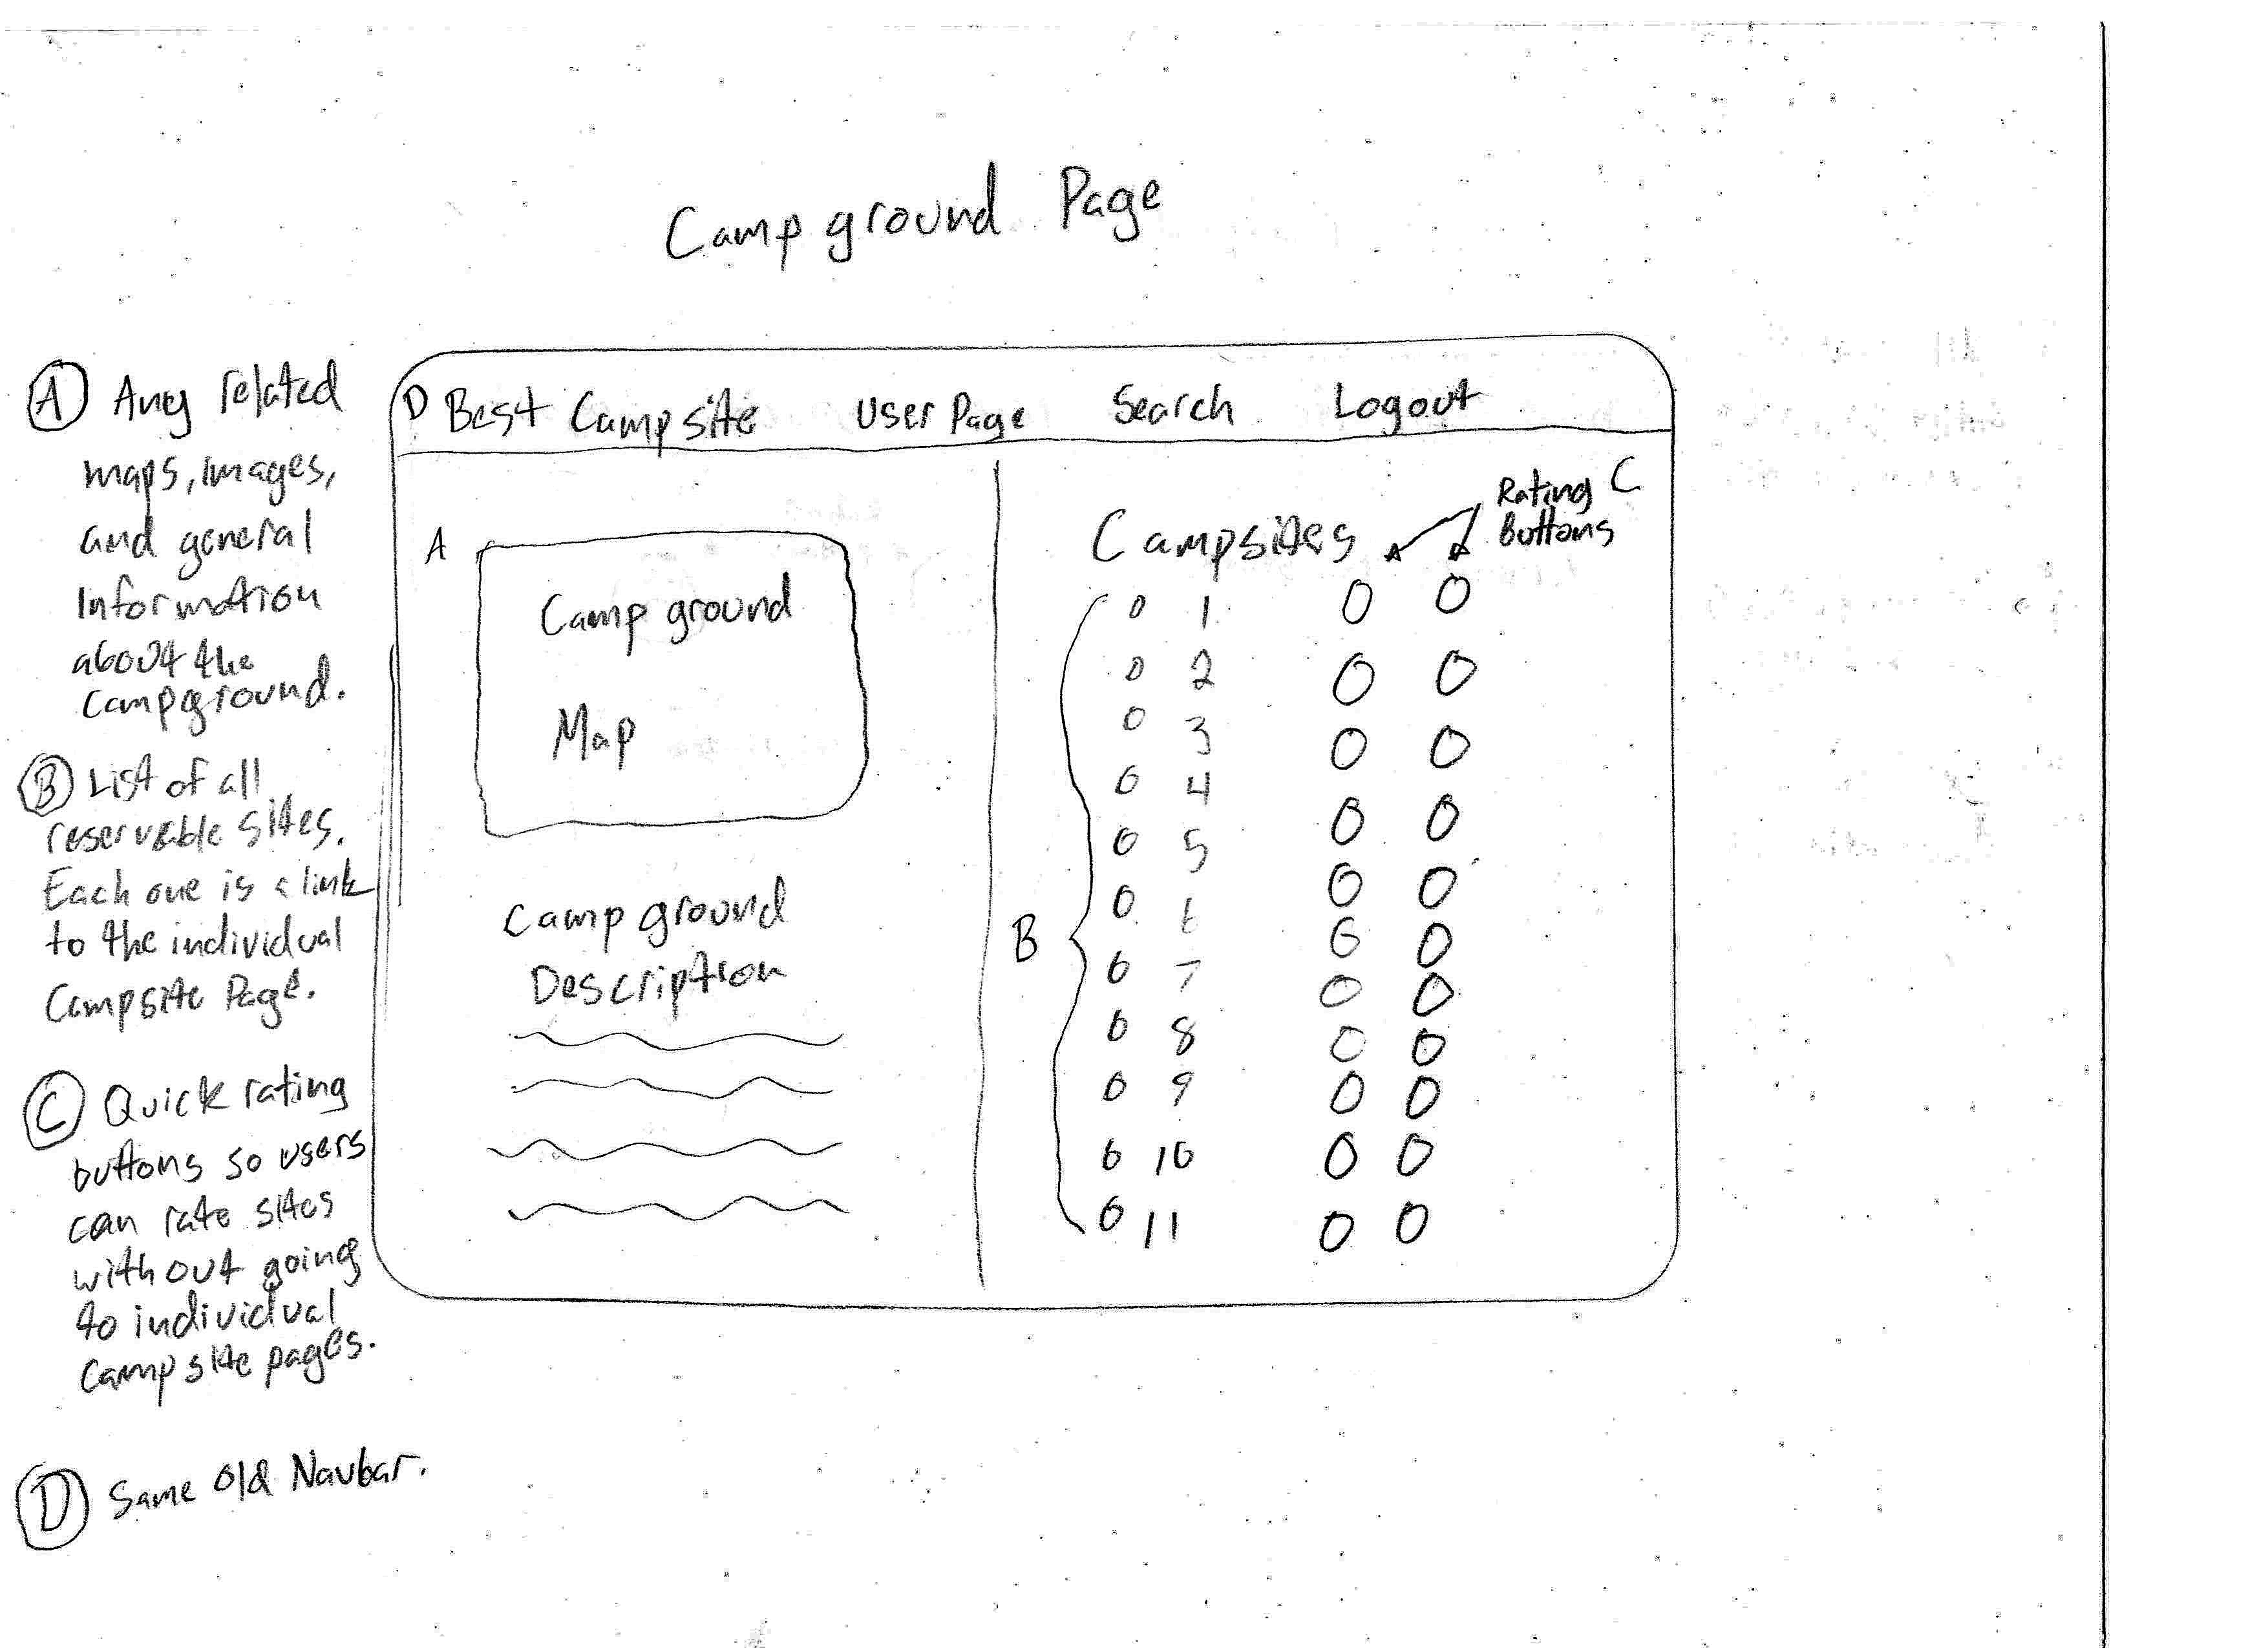 Campground Page
A Any related
maps, images,
and general
Information
about the
Campground.
B List of all
reservable sites.
Each one is a link
to the individual
Campsite Page.
C Quick rating
buttons so users
can rate sites
without going
to individual
Campsite pages.
D Same Old Navbar.
D Best Campsite User Page Search Logout
A
Campground
Map
Campground
Description
Rating C
Buttons
Campsites
B
1
2
3
4
5
6
7
8
9
10
11